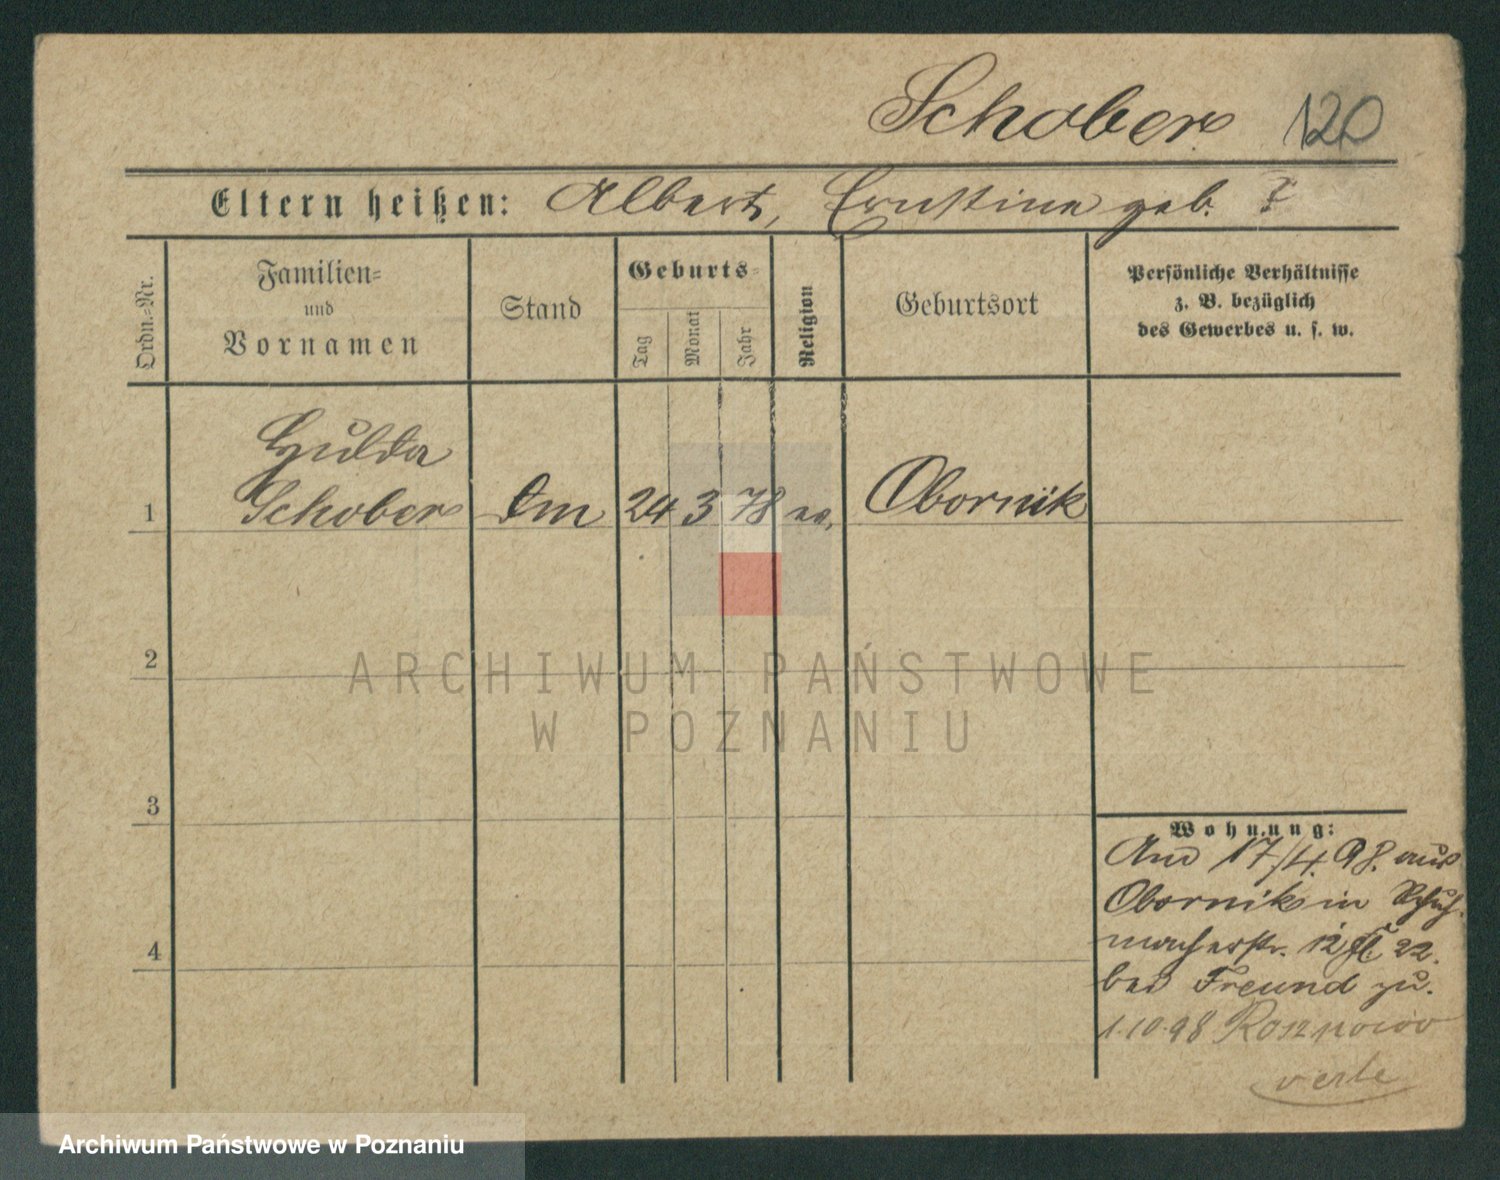 Schober 120
Eltern heißen: Albert, Ernstine geb. ?
Ordn.-Nr.
Familien-
und
Vornamen
Stand
Geburts-
Tag
Monat
Jahr
Religion
Geburtsort
Persönliche Verhältnisse
z. B. bezüglich
des Gewerbes u. s. w.
Hulda
1 Schober Dm 24 3 78 ev. Obornik
2
ARCHIWUM PAŃSTWOWE
W POZNANIU
3
Wohnung:
17/4. 98. aus
Obornik in Schuh-
macherstr. 12
4
22.
bei Freund zu.
1.10.98 Rosnowo
Archiwum Państwowe w Poznaniu